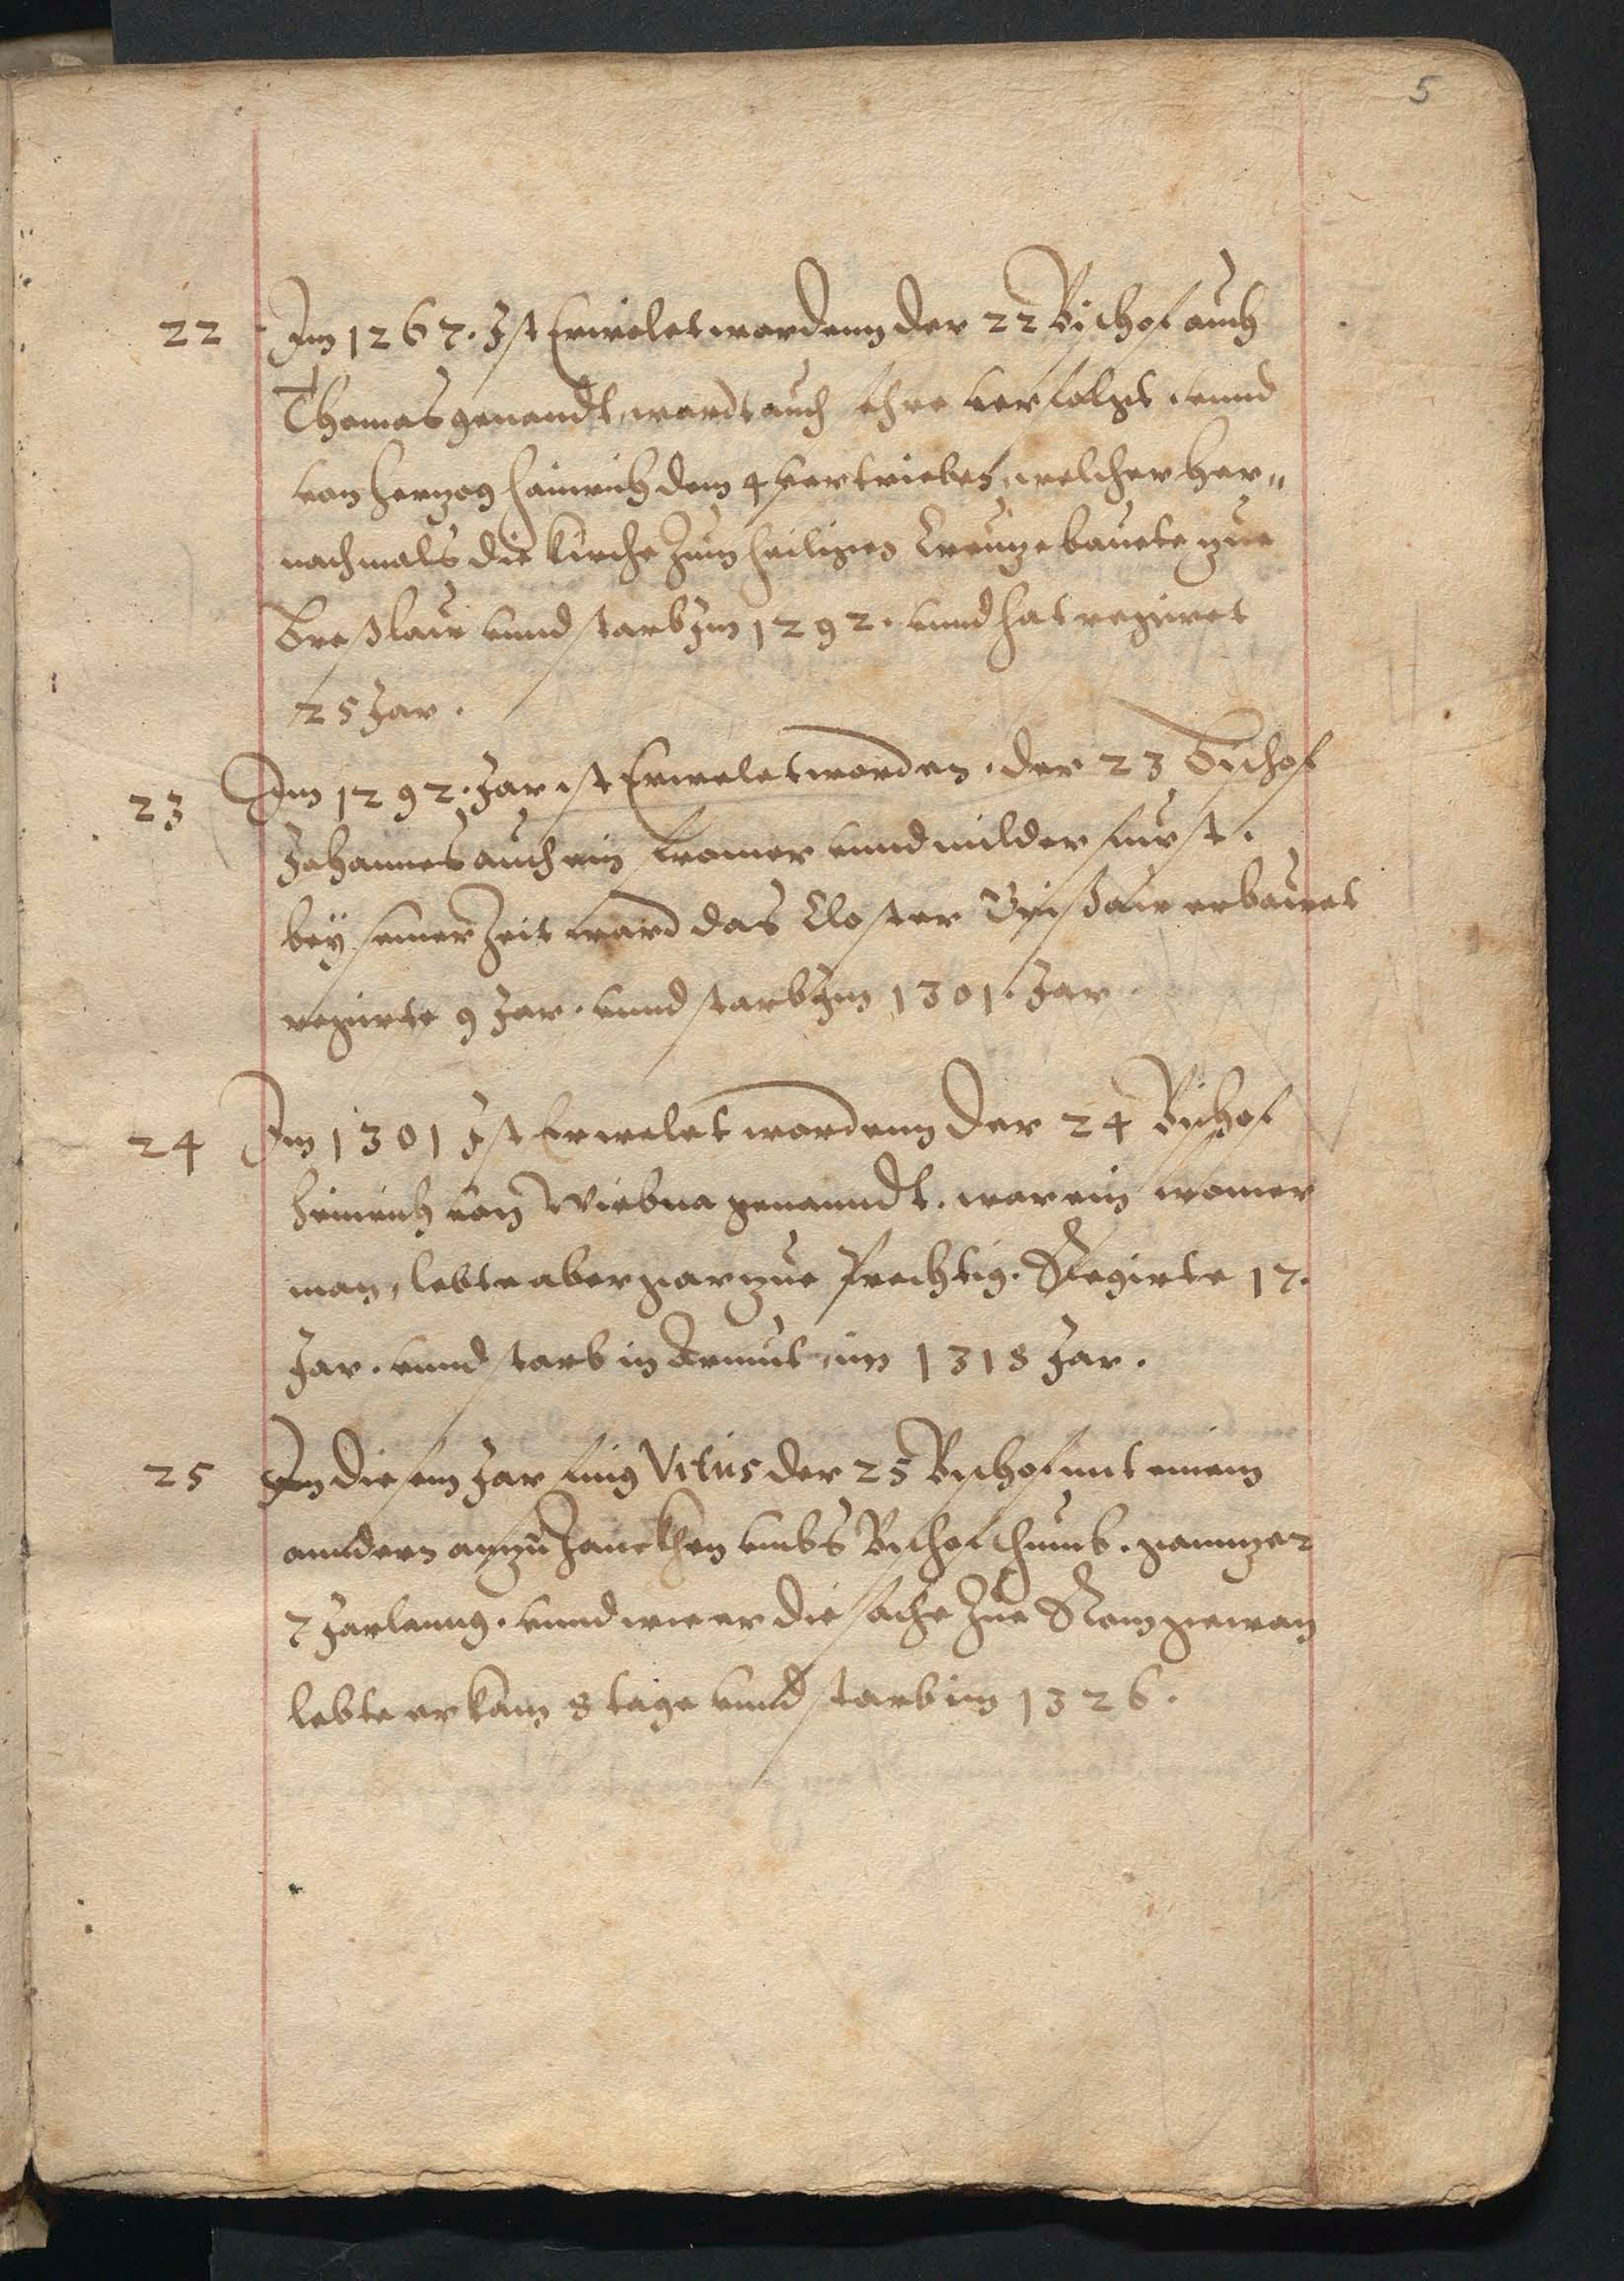 5
22 Im 1267. Ist Erwelet wordenn der 22 Bischof auch
Thomas genandt, wardt auch sehre verfolget. vnnd
von Hertzog Heinrich dem 4 vertrieben, welcher her„
nachmals die kirche Zum heiligen Creutze bauete zue
Breßlaw vnnd starb Im 1292. vnnd hat regiret
25 Jar.
23 Im 1292. Jar ist Erwelet worden. der 23 Bischof
Johannes auch ein fromer vnnd milder furst.
bey seiner Zeit ward das Closter Grißaw erbawet
regirte 9 Jar. vnnd starb Im 1301. Jar
24 Im 1301 Ist Erwelet wordenn der 24 Bischof
Heinrich von Wirbna genanndt. war ein fromer
man, lebte aber gar zue Prechtig. Regirte 17.
Jar. vnnd starb in Armut im 1318 Jar.
25 In diesem Jar fing Vitus der 25 Bischof mit einem
anndern an zu Zanckhen vmbs Bischofthumb. gantzer
7 Jarlanng. vnnd wie er die sache Zue Rom gewan
lebte er kam 8 tage vnnd starb im 1326.